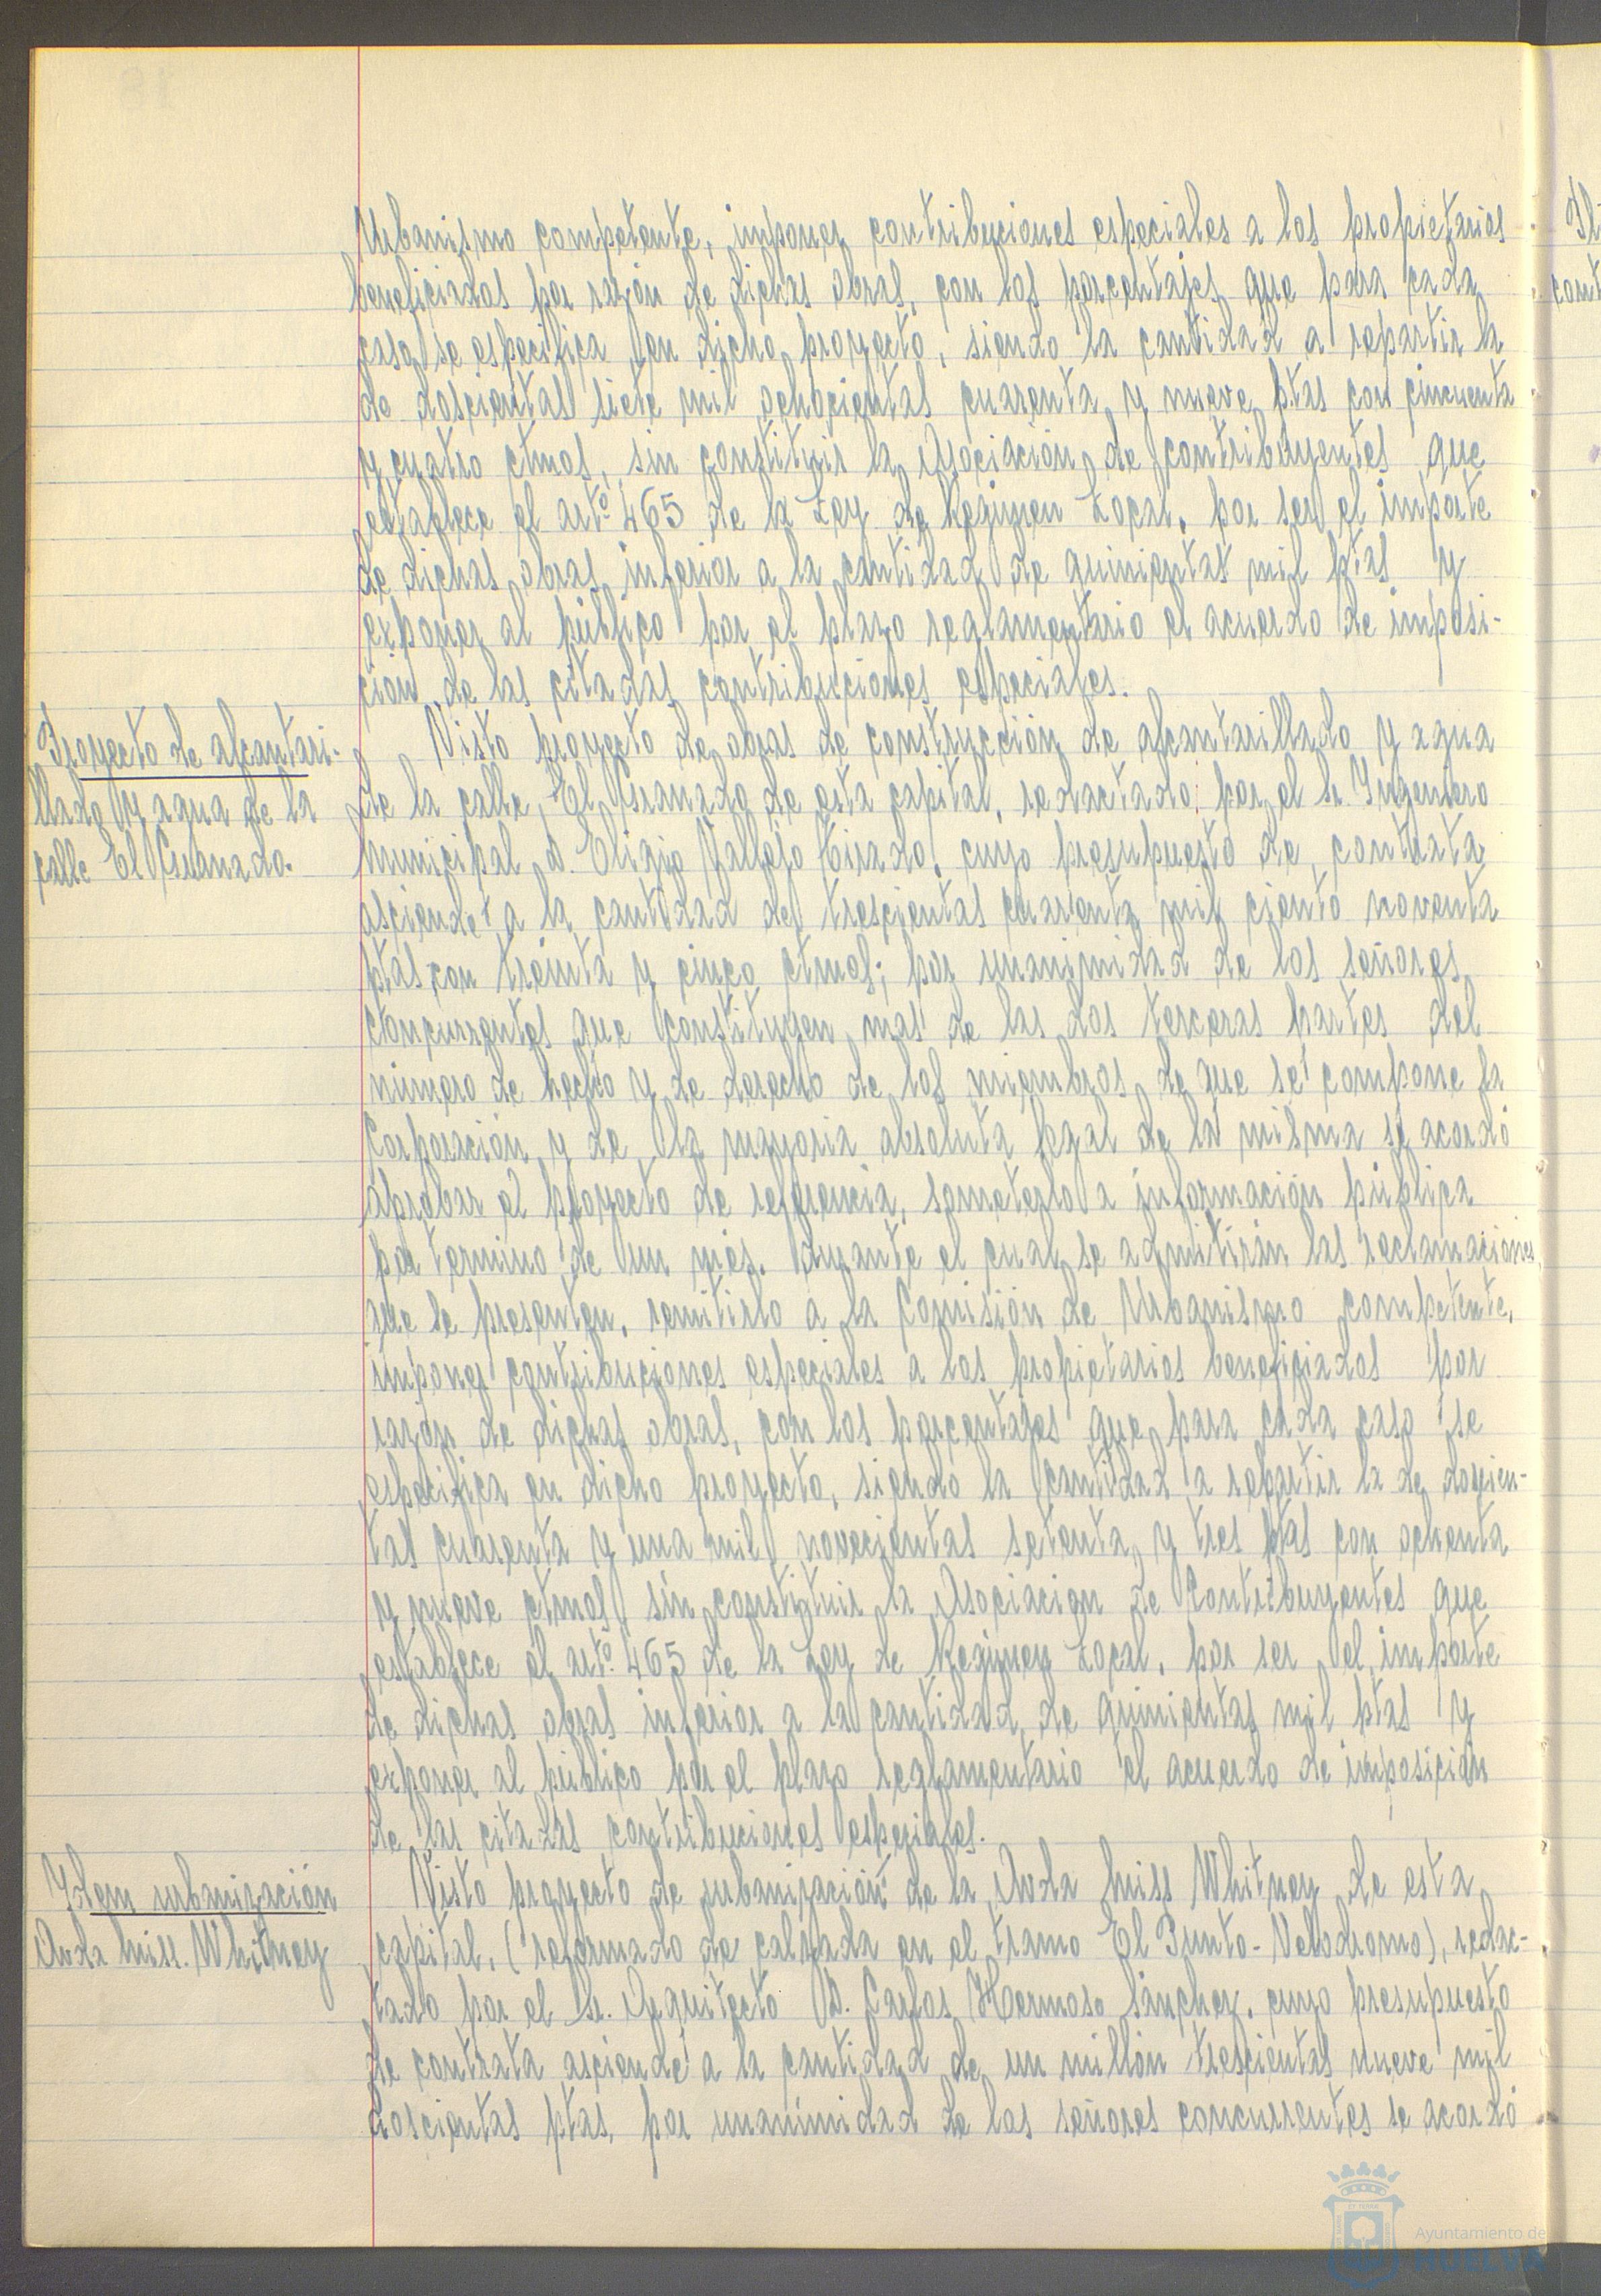 Urbanismo competente, imponer contribuciones especiales a los propietarios
beneficiados por razón de dichas obras, con los porcentajes que para cada
caso se especifica en dicho proyecto, siendo la cantidad a repartir la
de doscientas siete mil ochocientas cuarenta y nueve ptas con cincuenta
y cuatro ctmos, sin constituir la Asociación de contribuyentes que
establece el artº 465 de la Ley de Regimen Local, por ser el importe
de dichas obras inferior a la cantidad de quinientas mil ptas y
exponer al público por el plazo reglamentario el acuerdo de imposi-
ción de las citadas contribuciones especiales.
Proyecto de alcantari-
llado y agua de la
calle El Granado.
Visto proyecto de obras de construcción de alcantarillado y agua
de la calle, El Granado de esta capital, redactado por el Sr. Ingeniero
Municipal D. Eligio Vallejo Tirado, cuyo presupuesto de contrata
asciende a la cantidad de trescientas cuarenta mil ciento noventa
ptas con treinta y cinco ctmos; por unanimidad de los señores
concurrentes que constituyen mas de las dos terceras partes del
número de hecho y de derecho de los miembros de que se compone la
Corporación y de la mayoria absoluta legal de la misma se acordó
aprobar el proyecto de referencia, someterlo a información pública
por termino de un mes, durante el cual se admitirán las reclamaciones
que se presenten, remitirlo a la Comisión de Urbanismo competente,
imponer contribuciones especiales a los propietarios beneficiados por
razón de dichas obras, con los porcentajes que para cada caso se
especifica en dicho proyecto, siendo la cantidad a repartir la de doscien-
tas cuarenta y una mil novecientas setenta y tres ptas con ochenta
y nueve ctmos sin constituir la Asociacion de Contribuyentes que
establece el artº 465 de la Ley de Regimen Local, por ser el importe
de dichas obras inferior a la cantidad de quinientas mil ptas y
exponer al público por el plazo reglamentario el acuerdo de imposición
de las citadas contribuciones especiales.
Idem urbanización
Avda Miss. Whitney
Visto proyecto de urbanización de la Avda Miss Whitney de esta
capital, (reformado de calzada en el tramo El Punto-Velodromo), redac-
tado por el Sr. Arquitecto D. Carlos Hermoso Sánchez, cuyo presupuesto
de contrata asciende a la cantidad de un millón trescientas nueve mil
doscientas ptas, por unanimidad de los señores concurrentes se acordó
Ayuntamiento de
HUELVA